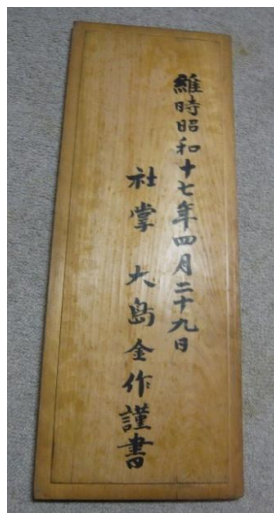 維時昭和十七年四月二十九日
社掌 大島金作謹書